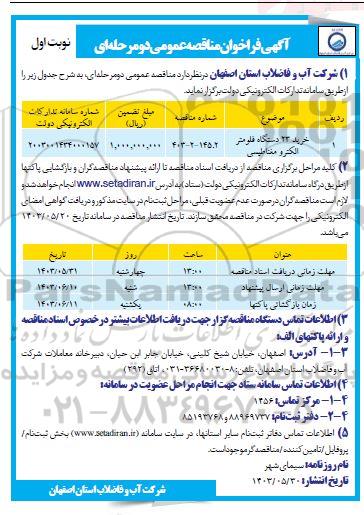 آگهی فراخوان مناقصه عمومی دو مرحله‌ای
نوبت اول
۱) شرکت آب و فاضلاب استان اصفهان درنظردارد مناقصه عمومی دو مرحله‌ای، به شرح جدول زیر را
ازطریق سامانه تدارکات الکترونیکی دولت برگزار نماید.
ردیف موضوع شماره مناقصه مبلغ تضمین (ریال) شماره سامانه تدارکات الکترونیکی دولت
۱ خرید ۲۳ دستگاه فلومتر الکترو مغناطیسی ۴۰۳-۲-۱۴۵.۲ ۱,۰۰۰,۰۰۰,۰۰۰ ۲۰۰۳۰۰۱۴۳۴۰۰۰۱۵۷
۲) کلیه مراحل برگزاری مناقصه از دریافت اسناد مناقصه تا ارائه پیشنهاد مناقصه‌گران و بازگشایی پاکتها
ازطریق درگاه سامانه تدارکات الکترونیکی دولت (ستاد) به آدرس www.setadiran.ir انجام خواهد شد و
لازم است مناقصه‌گران درصورت عدم عضویت قبلی، مراحل ثبت نام در سایت مذکور و دریافت گواهی امضای
الکترونیکی را جهت شرکت در مناقصه محقق سازند. تاریخ انتشار مناقصه در سامانه تاریخ ۱۴۰۳/۰۵/۲۰
می‌باشد.
عنوان ساعت روز تاریخ
مهلت زمانی دریافت اسناد مناقصه ۱۳:۰۰ چهارشنبه ۱۴۰۳/۰۵/۳۱
مهلت زمانی ارسال پیشنهاد ۱۳:۰۰ شنبه ۱۴۰۳/۰۶/۱۰
زمان بازگشائی پاکتها ۰۸:۰۰ یکشنبه ۱۴۰۳/۰۶/۱۱
۳) اطلاعات تماس دستگاه مناقصه‌گزار جهت دریافت اطلاعات بیشتر در خصوص اسناد مناقصه
و ارائه پاکتهای الف:
۳-۱- آدرس: اصفهان، خیابان شیخ کلینی، خیابان جابر ابن حیان، دبیرخانه معاملات شرکت
آب و فاضلاب استان اصفهان، تلفن: ۸-۰۳۱-۳۶۶۸۰۰۳۰ (داخلی ۲۹۲)
۴) اطلاعات تماس سامانه ستاد جهت انجام مراحل عضویت در سامانه:
۴-۱- مرکز تماس: ۱۴۵۶
۴-۲- دفتر ثبت نام: ۸۸۹۶۹۷۳۷ و ۸۵۱۹۳۷۶۸
۵) اطلاعات تماس دفاتر ثبت نام سایر استانها، در سایت سامانه (www.setadiran.ir) بخش ثبت نام/
پروفایل/تامین کننده/مناقصه‌گر موجود است.
نام روزنامه: سیمای شهر
تاریخ انتشار: ۱۴۰۳/۰۵/۳۰
شرکت آب و فاضلاب استان اصفهان